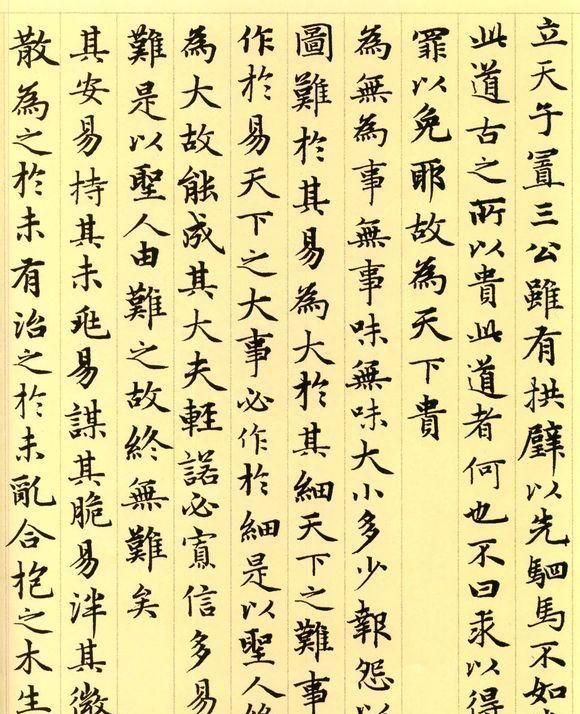 立天子置三公雖有拱璧以先駟馬不如
此道古之所以貴此道者何也不曰求以得
罪以免耶故為天下貴
為無為事無事味無味大小多少報怨以
圖難於其易為大於其細天下之難事
作於易天下之大事必作於細是以聖人
為大故能成其大夫輕諾必寡信多易
難是以聖人由難之故終無難矣
其安易持其未兆易謀其脆易泮其微
散為之於未有治之於未亂合抱之木生